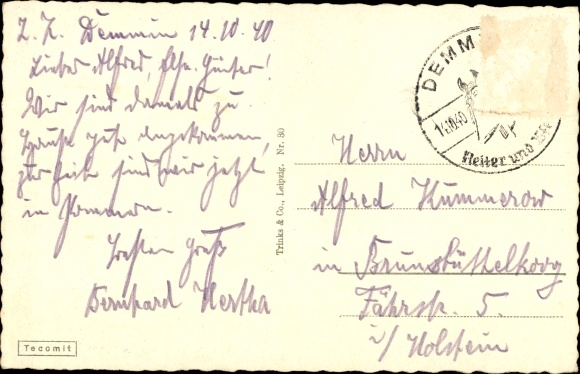 Z. Z. Demmin 14.10.40
Lieber Alfred, Else, Günter!
Wir sind damals zu
Hause gut angekommen,
zur Zeit sind wir jetzt
in Pommern.
Besten Gruß
Bernhard Hertha
Tecomit
Trinks & Co., Leipzig. Nr. 30
DEMM
14.10.40
Reiter und
Herrn
Alfred Kummerow
in Brunsbüttelkoog
Fährstr. 5.
i/ Holstein